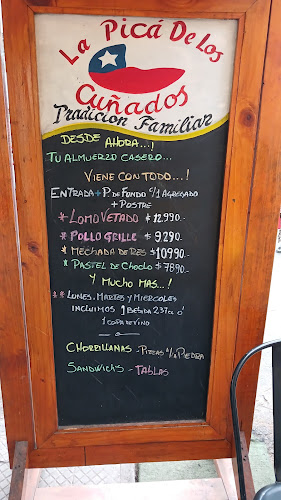 La Picá De Los
Cuñados
Tradicion Familiar
DESDE AHORA...!
TU ALMUERZO CASERO...
VIENE CON TODO...!
ENTRADA + P. DE FONDO c/1 AGREGADO
+ POSTRE
* LOMO VETADO $12.990.-
* POLLO GRILLE $9.290.-
* MECHADA DE RES $10990.-
* PASTEL DE CHOCLO $7890.-
Y MUCHO MAS...!
** LUNES, MARTES Y MIERCOLES
INCLUIMOS 1 BEBIDA 237CC O'
1 COPA DE VINO
CHORRILLANAS - PIZZAS A LA PIEDRA
SANDWICHS - TABLAS